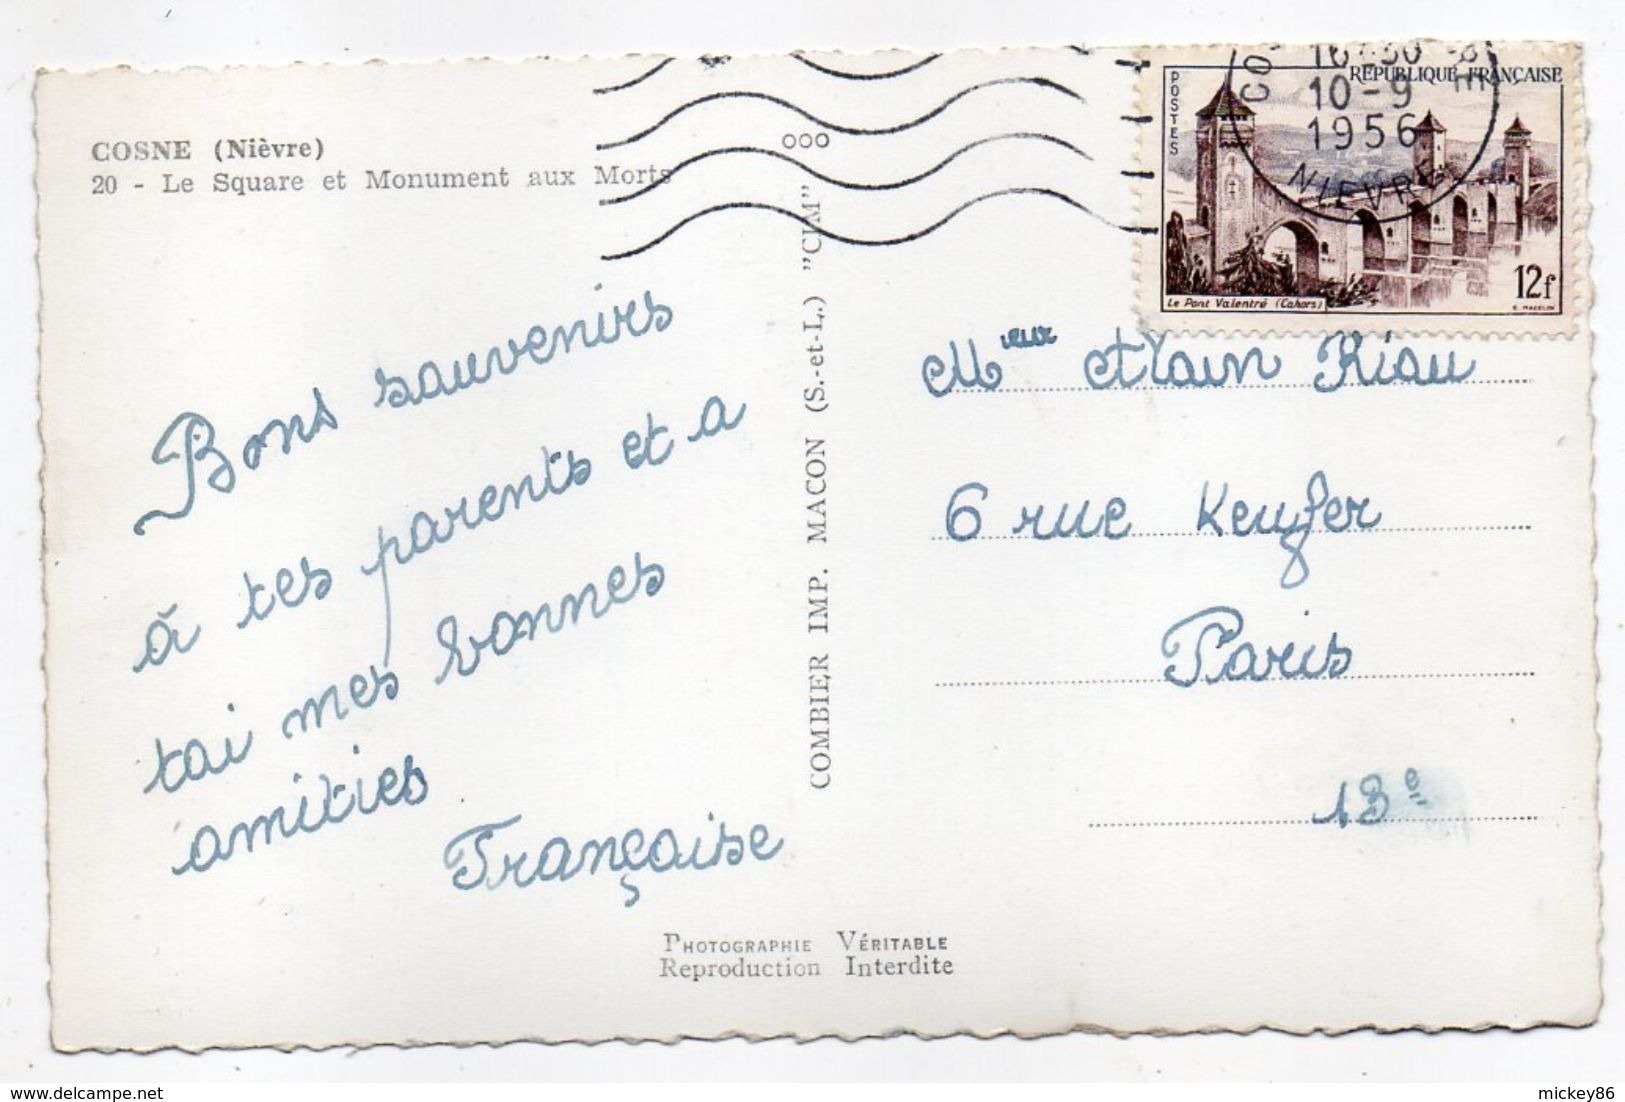 COSNE (Nièvre)
20 - Le Square et Monument aux Morts
Bons souvenirs
à tes parents et a
tai mes bonnes
amities
Françoise
COMBIER IMP. MACON (S.-et-L.) "CIM"
ooo
PHOTOGRAPHIE VÉRITABLE
Reproduction Interdite
16-30
10-9
1956
NIEVRE
POSTES
RÉPUBLIQUE FRANÇAISE
Le Pont Valentré (Cahors)
12f
Mieur Alain Riau
6 rue Keufer
Paris
13e
mickey86